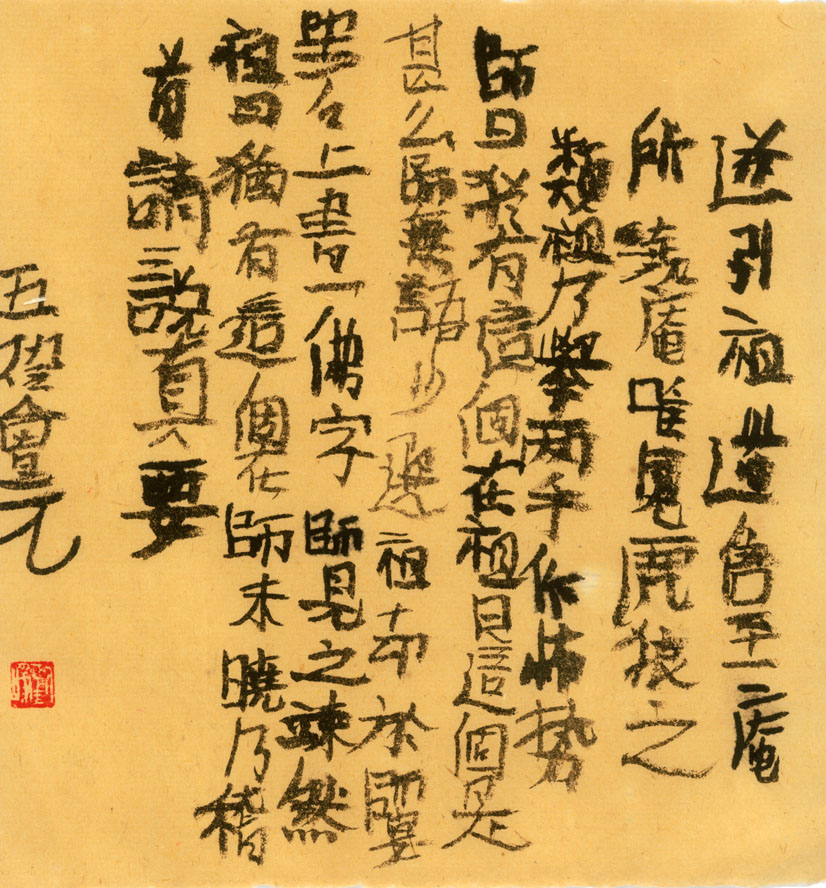 遂引祖至庵
所繞庵唯見虎狼之
類祖乃舉兩手作怖势
師曰猶有這個在祖曰這個是
甚么師無語少選祖却於師宴
坐石上書一佛字師見之竦然
祖曰猶有這個在師未曉乃稽
首請說真要
五燈會元